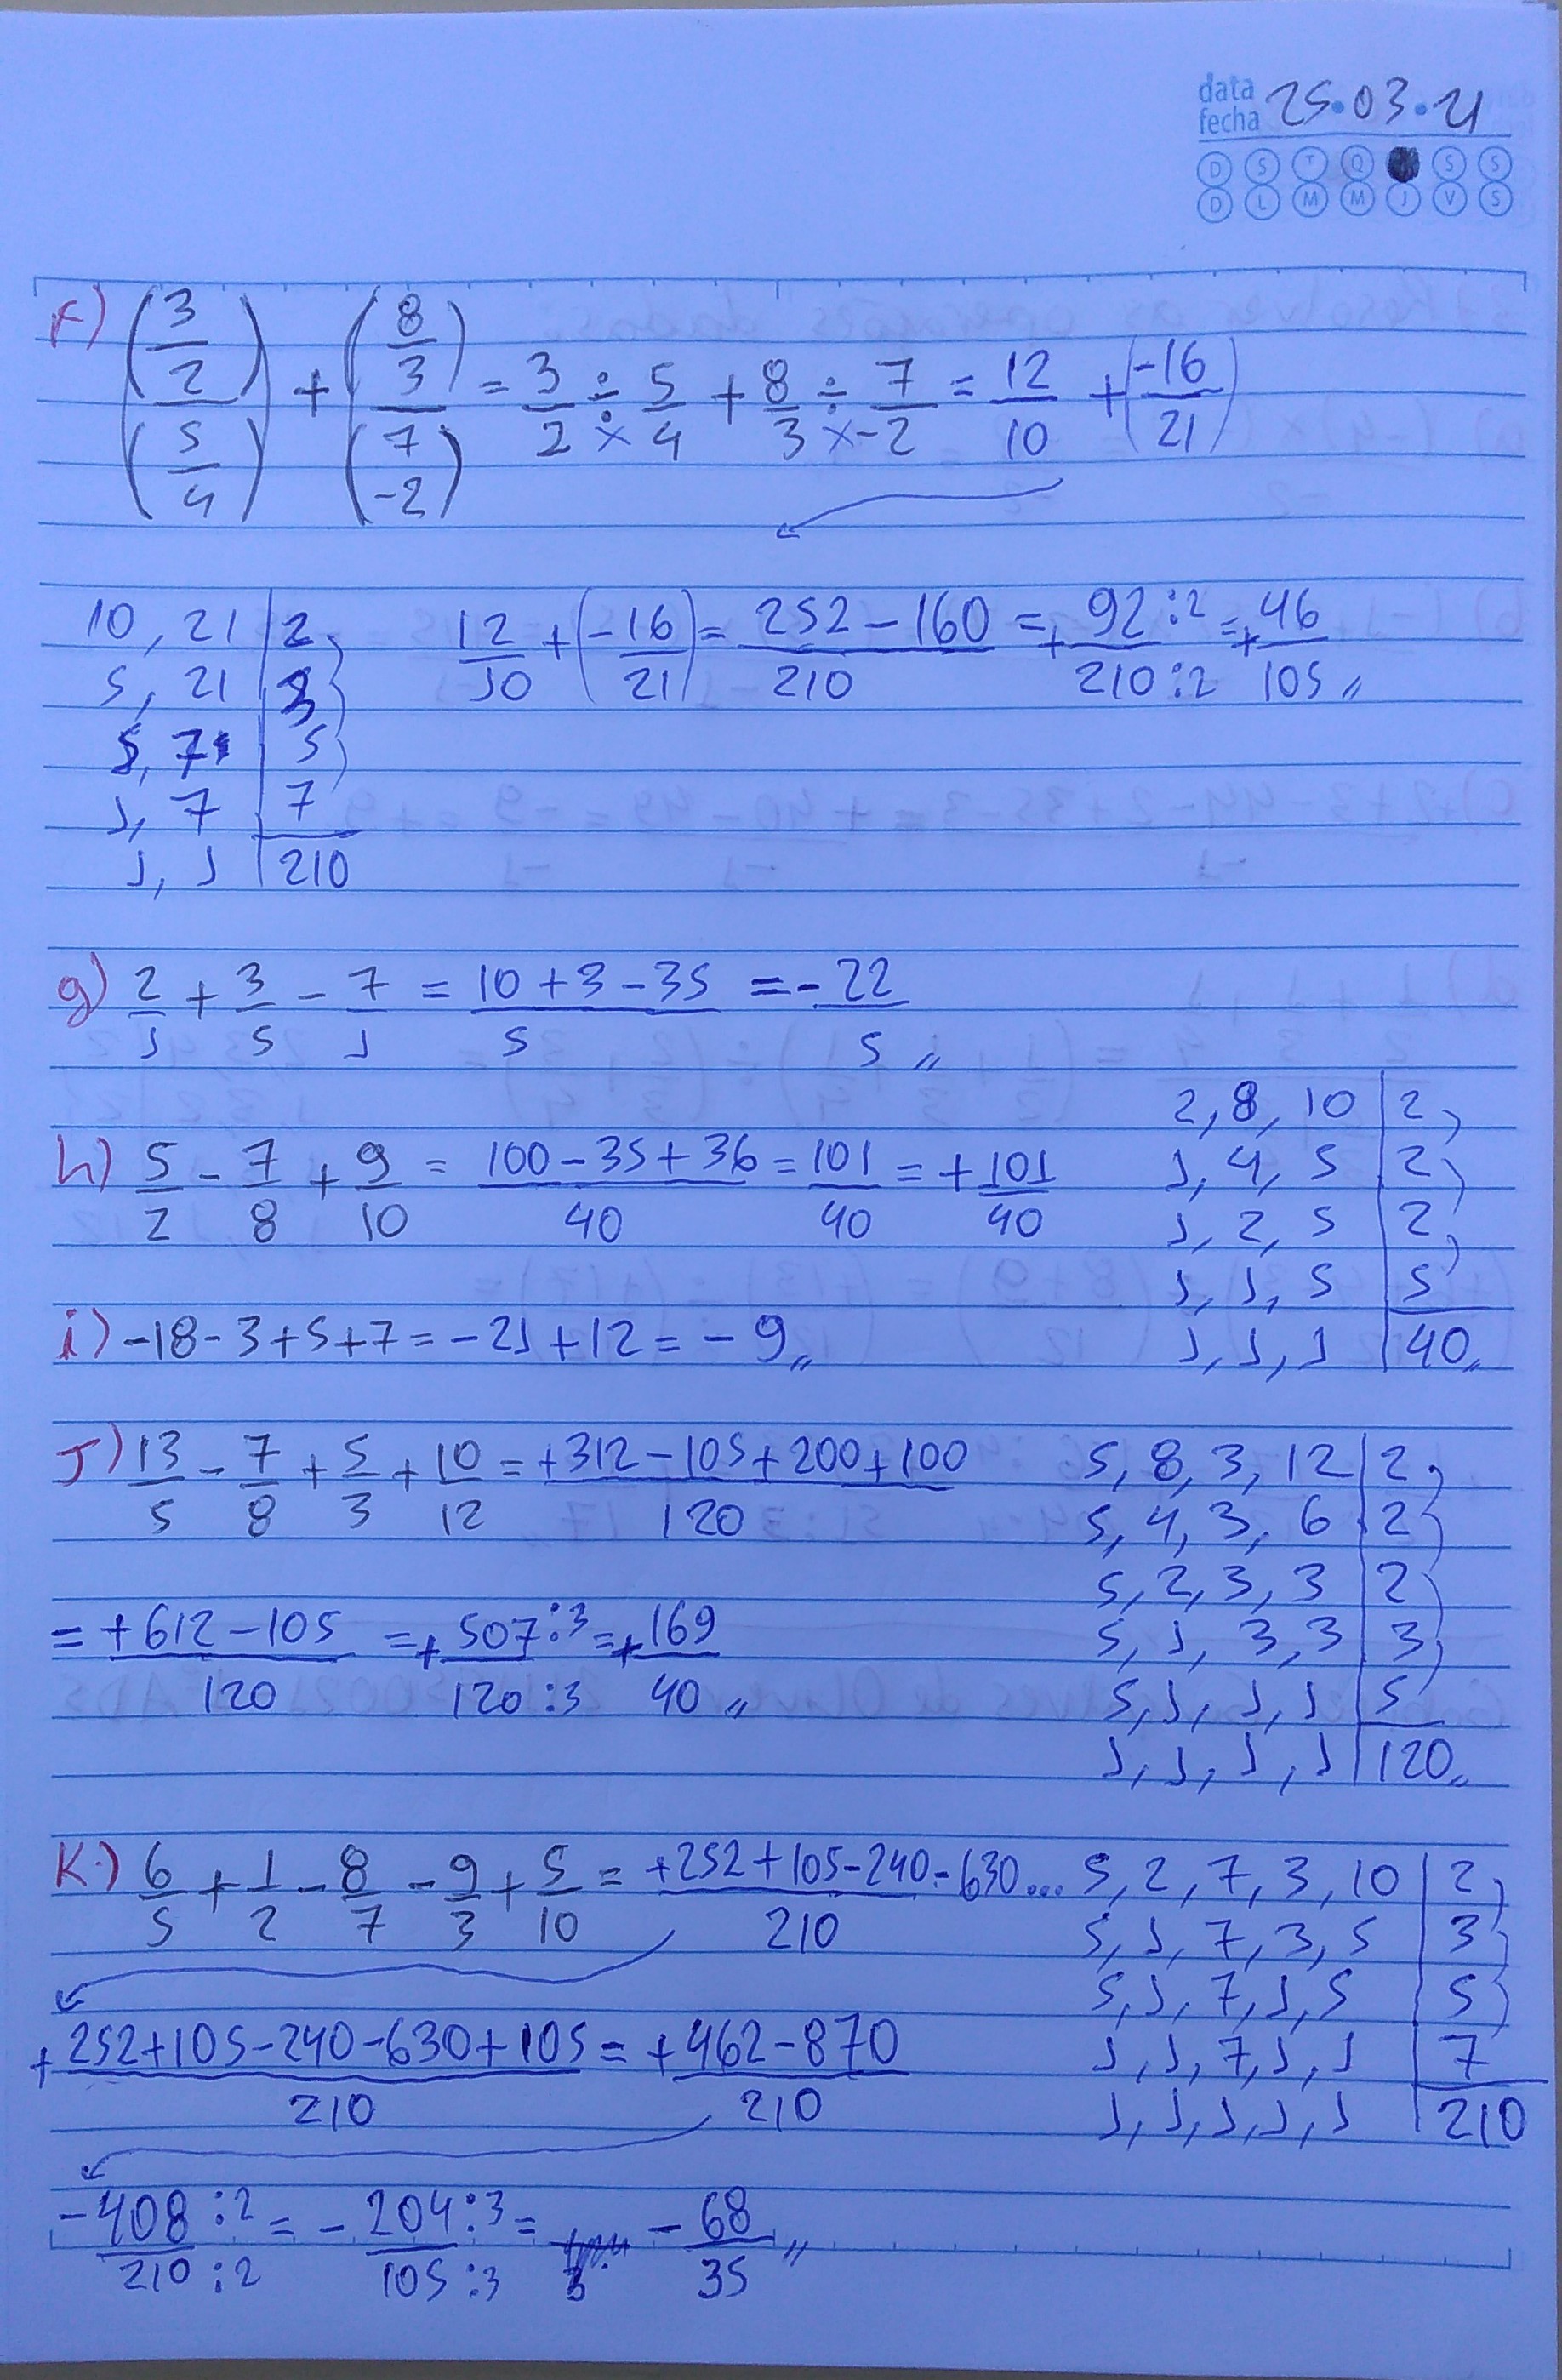 data
fecha 25.03.21
D S T Q S S
D L M M J V S
F) (3/2)/(5/4) + (8/3)/(7/-2) = 3/2 ÷ 5/4 + 8/3 ÷ 7/-2 = 12/10 + (-16/21)
× ×
10, 21 | 2
5, 21 | 3
5, 7 | 5
1, 7 | 7
1, 1 | 210
12/10 + (-16/21) = 252-160/210 = + 92:2/210:2 = + 46/105 〃
g) 2/1 + 3/5 - 7/1 = 10+3-35/5 = - 22/5 〃
h) 5/2 - 7/8 + 9/10 = 100-35+36/40 = 101/40 = + 101/40
2, 8, 10 | 2
1, 4, 5 | 2
1, 2, 5 | 2
1, 1, 5 | 5
1, 1, 1 | 40 〃
i) -18-3+5+7 = -21+12 = -9 〃
J) 13/5 - 7/8 + 5/3 + 10/12 = +312-105+200+100/120
= +612-105/120 = + 507:3/120:3 = + 169/40 〃
5, 8, 3, 12 | 2
5, 4, 3, 6 | 2
5, 2, 3, 3 | 2
5, 1, 3, 3 | 3
5, 1, 1, 1 | 5
1, 1, 1, 1 | 120 〃
K) 6/5 + 1/2 - 8/7 - 9/3 + 5/10 = +252+105-240-630.../210
+ 252+105-240-630+105/210 = +462-870/210
-408:2/210:2 = - 204:3/105:3 = - 68/35 〃
5, 2, 7, 3, 10 | 2
5, 1, 7, 3, 5 | 3
5, 1, 7, 1, 5 | 5
1, 1, 7, 1, 1 | 7
1, 1, 1, 1, 1 | 210